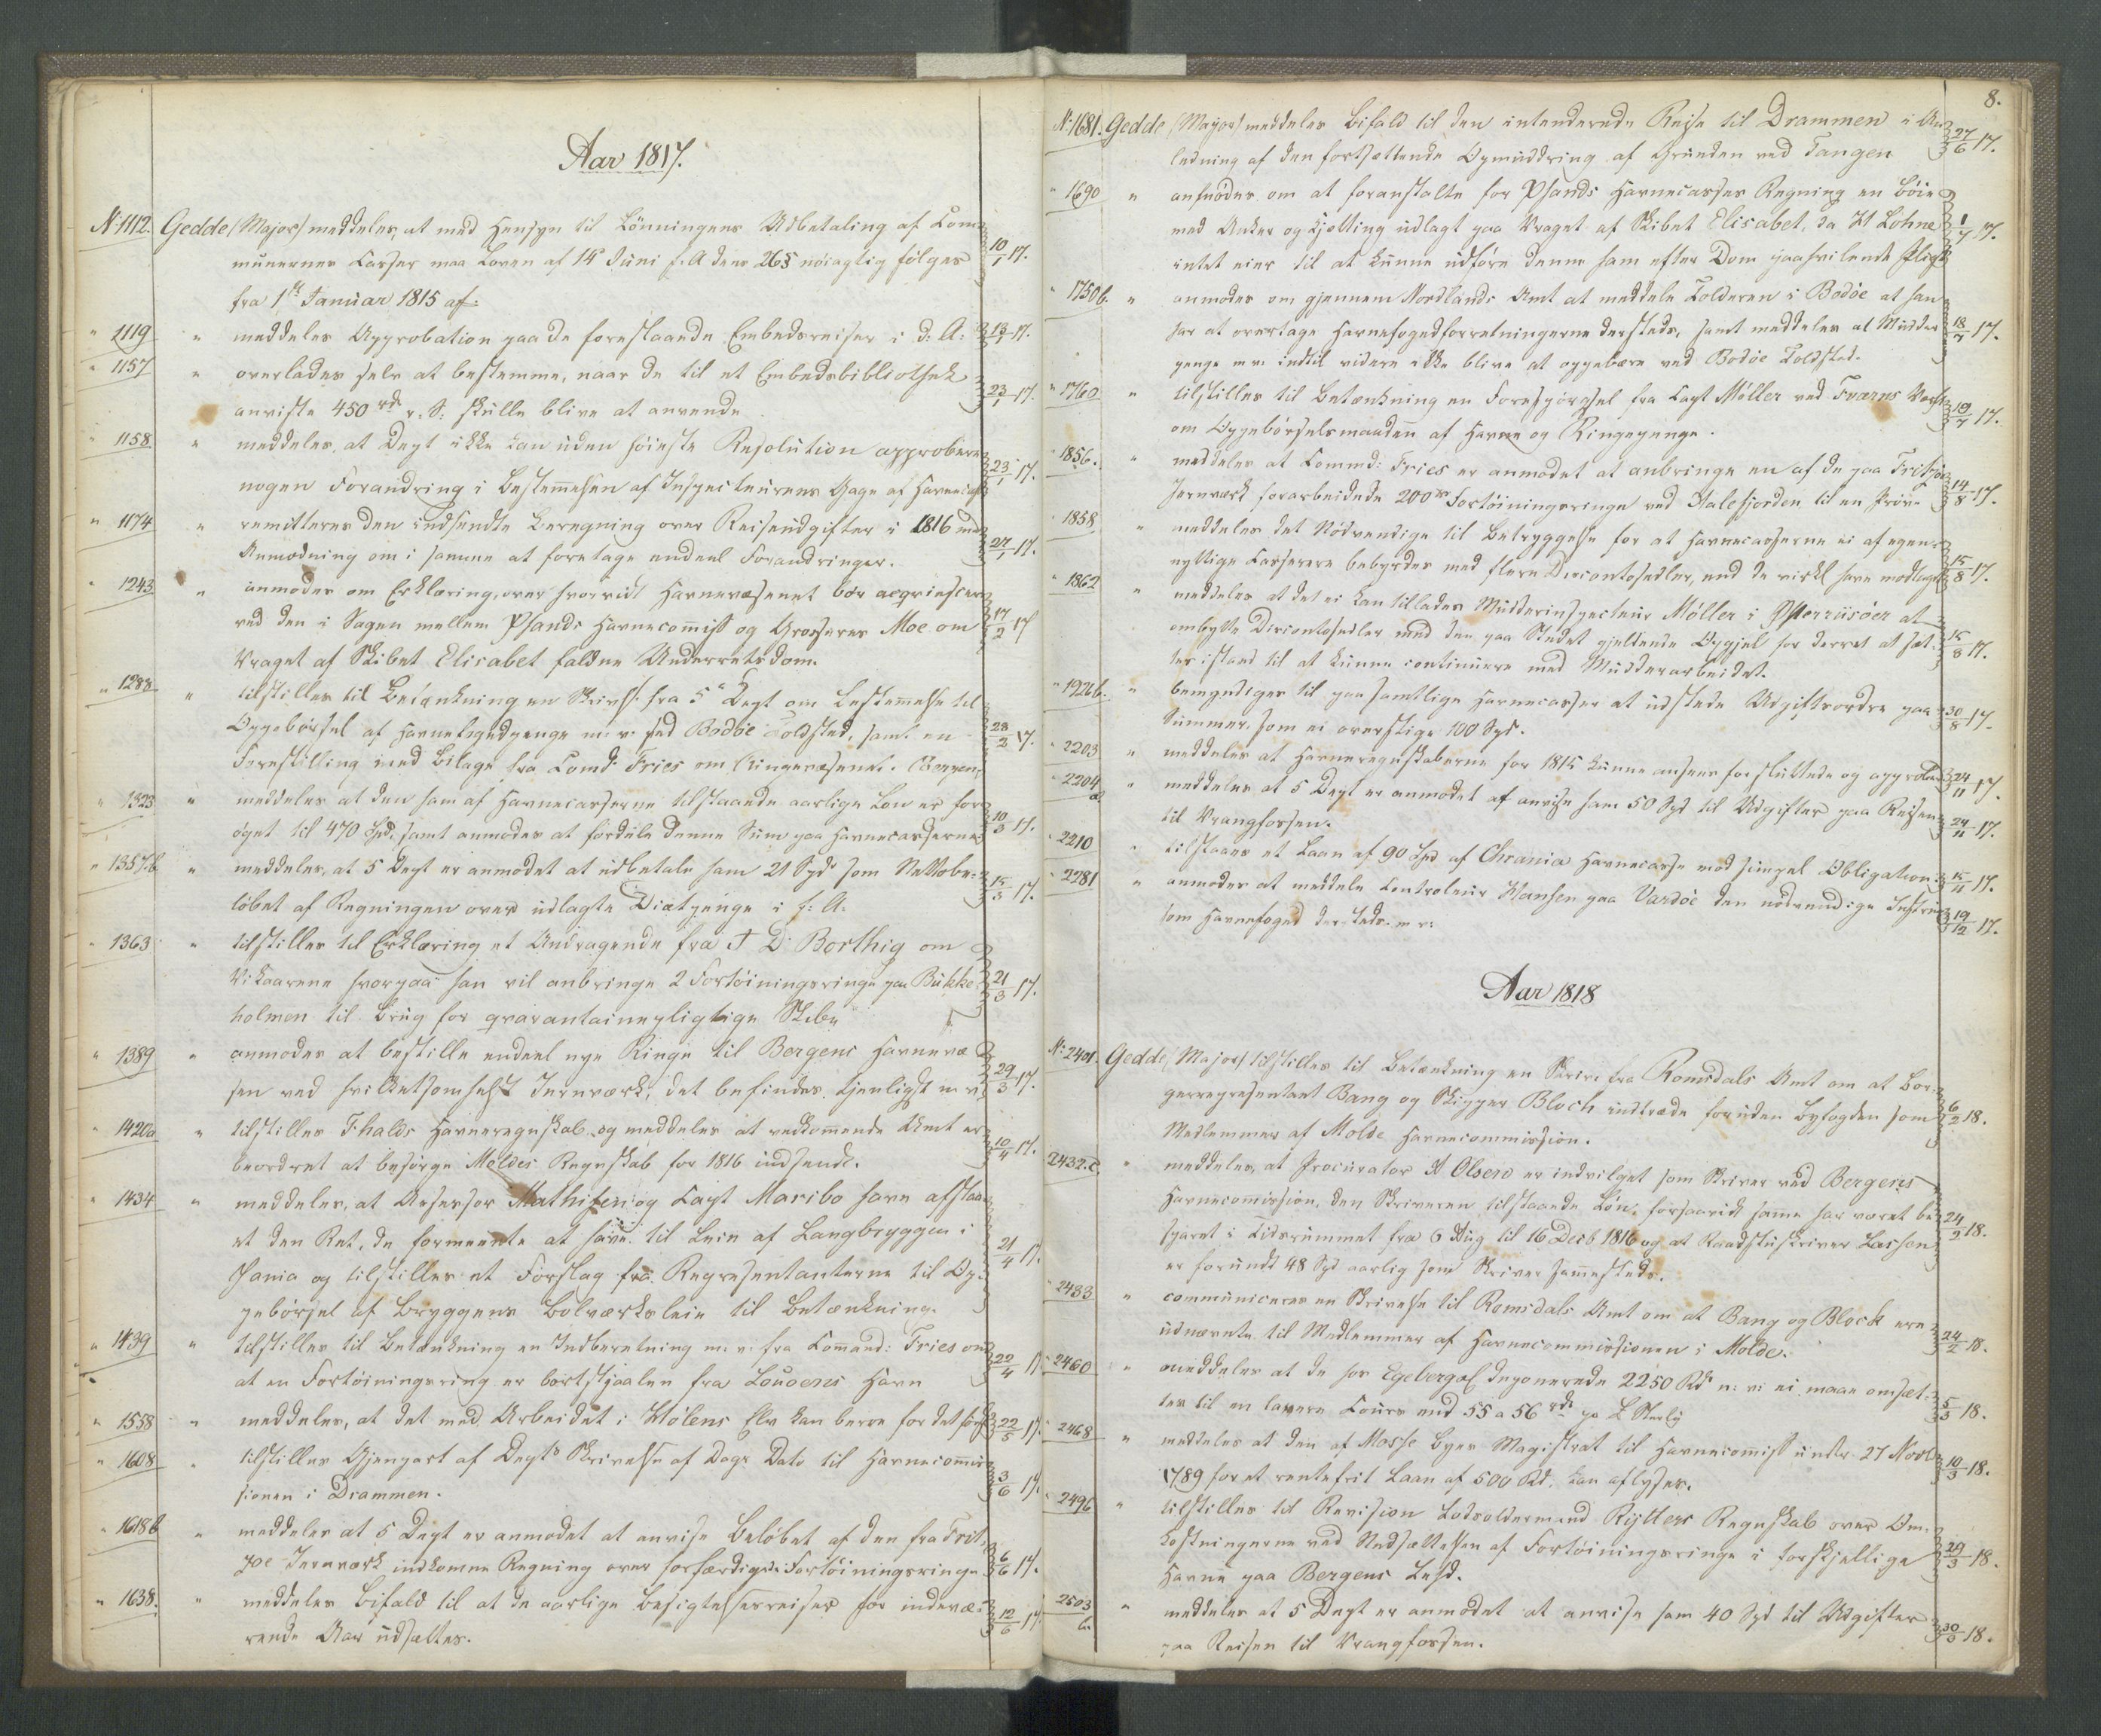 Aar 1817.
No 1112. Gedde (Major) meddeles, at med Hensyn til Lönningens Udbetaling af Com-
munernes Casser maa Loven af 14 Juni f. A dens 26 § nöiagtig fölges 10/1 17.
fra 1ste Januar 1815 af.
" 1119 " meddeles Approbation paa de forestaaende Embedsreiser i d: A: 13/1 17.
" 1157 " overlades selv at bestemme, naar de til et Embedsbibliothek
anviste 450 rd r. S: skulle blive at anvende 23/1 17.
" 1158 " meddeles, at Dept ikke kan uden höieste Resolution approbere
nogen Forandring i Bestemmelsen af Inspecteurens Gage af Havnecass 23/1 17.
" 1174 " remitteres den indsendte Beregning over Reiseudgifter i 1816 med
Anmodning om i samme at foretage endeel Forandringer. 27/1 17.
" 1243 " anmodes om Erklæring, over hvorvidt Havnevæsenet bör acqviescere
ved den i Sagen mellem Xsands Havnecommiss og Grosserer Moe om 17/2 17
Vraget af Skibet Elisabet faldne Underretsdom.
" 1288 " tilstilles til Betænkning en Skriv: fra 5e Dept om Bestemmelse til
Oppebörsel af Havnefogedpenge m: v: ved Bodöe Toldsted, samt en 28/2 17.
Forestilling med Bilage fra Comd: Fries om Ringevæsenet. (Bergen,
" 1323 " meddeles at den ham af Havnecasserne tilstaaende aarlige Lön er for-
öget til 470 Spd, samt anmodes at fordele denne Sum paa Havnecasserne 10/3 17.
" 1357.b. " meddeles, at 5 Dept er anmodet at udbetale ham 21 Spd som Nettobe-
löbet af Regningen over udlagte Diætpenge i f: A: 15/3 17.
" 1363 " tilstilles til Erklæring et Andragende fra J D: Borthig om
Vilkaarene hvorpaa han vil anbringe 2 Fortöiningsringe paa Bukke- 21/3 17.
holmen til Brug for qvarantainepligtige Skibe
" 1389 " anmodes at bestille endeel nye Ringe til Bergens Havnevæ-
sen ved hvilketsomhelst Jernværk, det befindes tjenligst m v: 29/3 17.
" 1420a " tilstilles Fhalds Havneregnskab og meddeles at vedkommende Amt er
beordret at besörge Moldes Regnskab for 1816 indsendt. 10/4 17.
" 1434 " meddeles, at Assessor Mathisen og Capt Maribo have afstaa-
et den Ret, de formeente at have til Leie af Langbryggen i 21/4 17.
Xania og tilstilles et Forslag fra Repræsentanterne til Op-
pebörsel af Bryggens Bolværksleie til Betænkning.
" 1439 " tilstilles til Betænkning en Indberetning m: v: fra Command: Fries om
at en Fortöiningsring er bortstjaalen fra Louvens Havn 22/4 17
" 1558 " meddeles, at det med Arbeidet i Hölens Elv kan beroe for det förste 22/5 17.
" 1608 " tilstilles Gjenpart af Depts Skrivelse af Dags Dato til Havnecommis-
sionen i Drammen. 3/6 17.
" 1618 b " meddeles at 5 Dept er anmodet at anvise Belöbet af den fra Frit-
zöe Jernværk indkomne Regning over forfærdigede Fortöiningsringe 6/6 17.
" 1638. " meddeles Bifald til at de aarlige Besigtelsesreiser for indevæ-
rende Aar udsættes. 12/6 17.
8.
No 1681. Gedde (Major) meddeles Bifald til den intenderede Reise til Drammen i An-
ledning af den fortsættende Opmuddring af Grunden ved Tangen 27/6 17.
" 1690 " anmodes om at foranstalte for Xsands Havnecasses Regning en Böie
med Anker og Kjetting udlagt paa Vraget af Skibet Elisabet, da H Lohne 1/7 17.
intet eier til at kunne udföre denne ham efter Dom paahvilende Pligt
" 1750 b. " anmodes om gjennem Nordlands Amt at meddele Tolderen i Bodöe at han
har at overtage Havnefogedforretningerne dersteds, samt meddeles at Mudder- 18/7 17.
penge m v: indtil videre ikke blive at oppebære ved Bodöe Toldsted.
" 1760 " tilstilles til Betænkning en Forespörgsel fra Capt Möller ved Frærns Værft
om Oppebörselsmaaden af Havne og Ringepenge. 19/7 17.
1856. " meddeles at Commd: Fries er anmodet at anbringe en af de paa Fritzöe
Jernværk forarbeidede 200 Fortöiningsringe ved Halefjorden til en Pröve 14/8 17.
1858 " meddeles det Nödvendige til Betryggelse for at Havnecasserne ei af egen-
nyttige Casserere bebyrdes med flere Discontosedler, end de virkl have modtaget 15/8 17.
" 1862 " meddeles at det ei kan tillades Mudderinspecteur Möller i Österriisöer at
ombytte Discontosedler med den paa Stedet gjeldende Opgjel for derved at sæt- 15/8 17.
tes istand til at kunne continuere med Mudderarbeidet.
" 1926 b. " bemyndiges til paa samtlige Havnecasser at udstede Udgiftsordre paa 30/8 17.
Summer, som ei overstige 100 Spd.
" 2203 " meddeles at Havneregnskaberne for 1815 kunne ansees for sluttede og approberede 24/11 17.
" 2204 a. " meddeles at 5 Dept er anmodet at anvise ham 50 Spd til Udgifter paa Reisen 24/11 17.
til Vrangfossen.
" 2210 " tilstaaes et Laan af 90 Spd af Chrania Havnecasse mod simpel Obligation. 15/11 17.
" 2281 " anmodes at meddele Controleur Hansen paa Vardöe den nödvendige Instrux
som Havnefoged dersteds m v: 19/12 17.
Aar 1818
No 2401. Gedde (Major) tilstilles til Betænkning en Skriv: fra Romsdals Amt om at Bor-
gerrepresentant Bang og Skipper Bloch indtræde foruden Byfogden som 6/2 18.
Medlemmer af Molde Havnecommission.
2432.c. " meddeles, at Procurator H Olsen er indvilget som Skriver ved Bergens
Havnecomission, den Skriveren tilstaaende Lön, forsaavidt samme har været be- 24/2 18.
sparet i Tidsrummet fra 6 Aug til 16 Decb 1816 og at Raadstuskriver Lassen
er forundt 48 Spd aarlig som Skriver sammesteds.
" 2433 " communiceres en Skrivelse til Romsdals Amt om at Bang og Block ere
udnævnte til Medlemmer af Havnecommissionen i Molde. 24/2 18.
" 2460 " meddeles at de hos Egeberg deponerede 2250 Rd n: v: ei maae omsæt-
tes til en lavere Cours end 55 a 56 rd pr £ Sterlg 5/3 18.
" 2468 " meddeles at den af Mosse Byes Magistrat til Havnecommiss under 27 Novbr
1789 for et rentefrit Laan af 500 Rd. kan aflyses. 10/3 18.
" 2496 " tilstilles til Revision Lodsoldermand Rÿtters Regnskab over Om-
kostningerne ved Nedsættelsen af Fortöiningsringe i forskjellige 29/3 18.
Havne paa Bergens Leed.
2503 b. " meddeles at 5 Dept er anmodet at anvise ham 40 Spd til Udgifter
paa Reisen til Vrangfossen. 30/3 18.